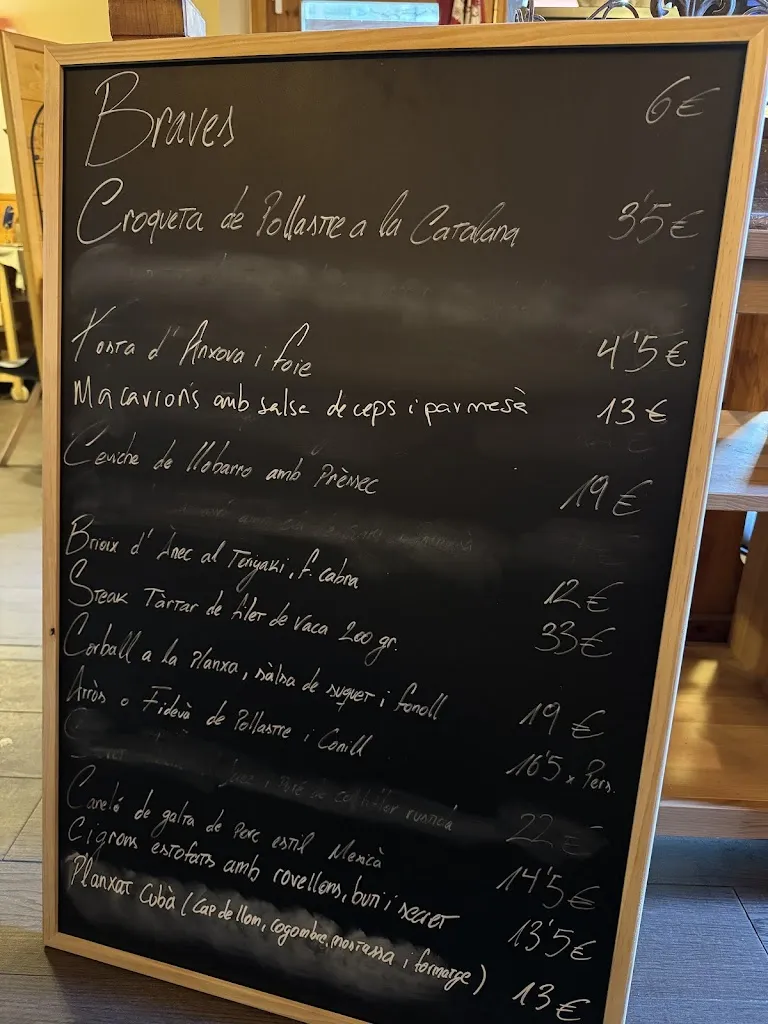 Braves 6€
Croqueta de Pollastre a la Catalana 3'5€
Tosta d'Anxova i foie 4'5€
Macarrons amb salsa de ceps i parmesà 13€
Ceviche de llobarro amb Prèssec 19€
Brioix d'Ànec al Teriyaki, f. cabra 12€
Steak Tàrtar de filet de vaca 200 gr. 33€
Corball a la Planxa, sàlsa de suquet i fonoll 19€
Arròs o Fidevà de Pollastre i Conill 16'5 x Pers.
22€
Caneló de galta de Porc estil Mexicà 14'5€
Cigrons estofats amb rovellons, buti i secret 13'5€
Planxat Cubà (Cap de llom, cogombre, mostassa i formatge) 13€